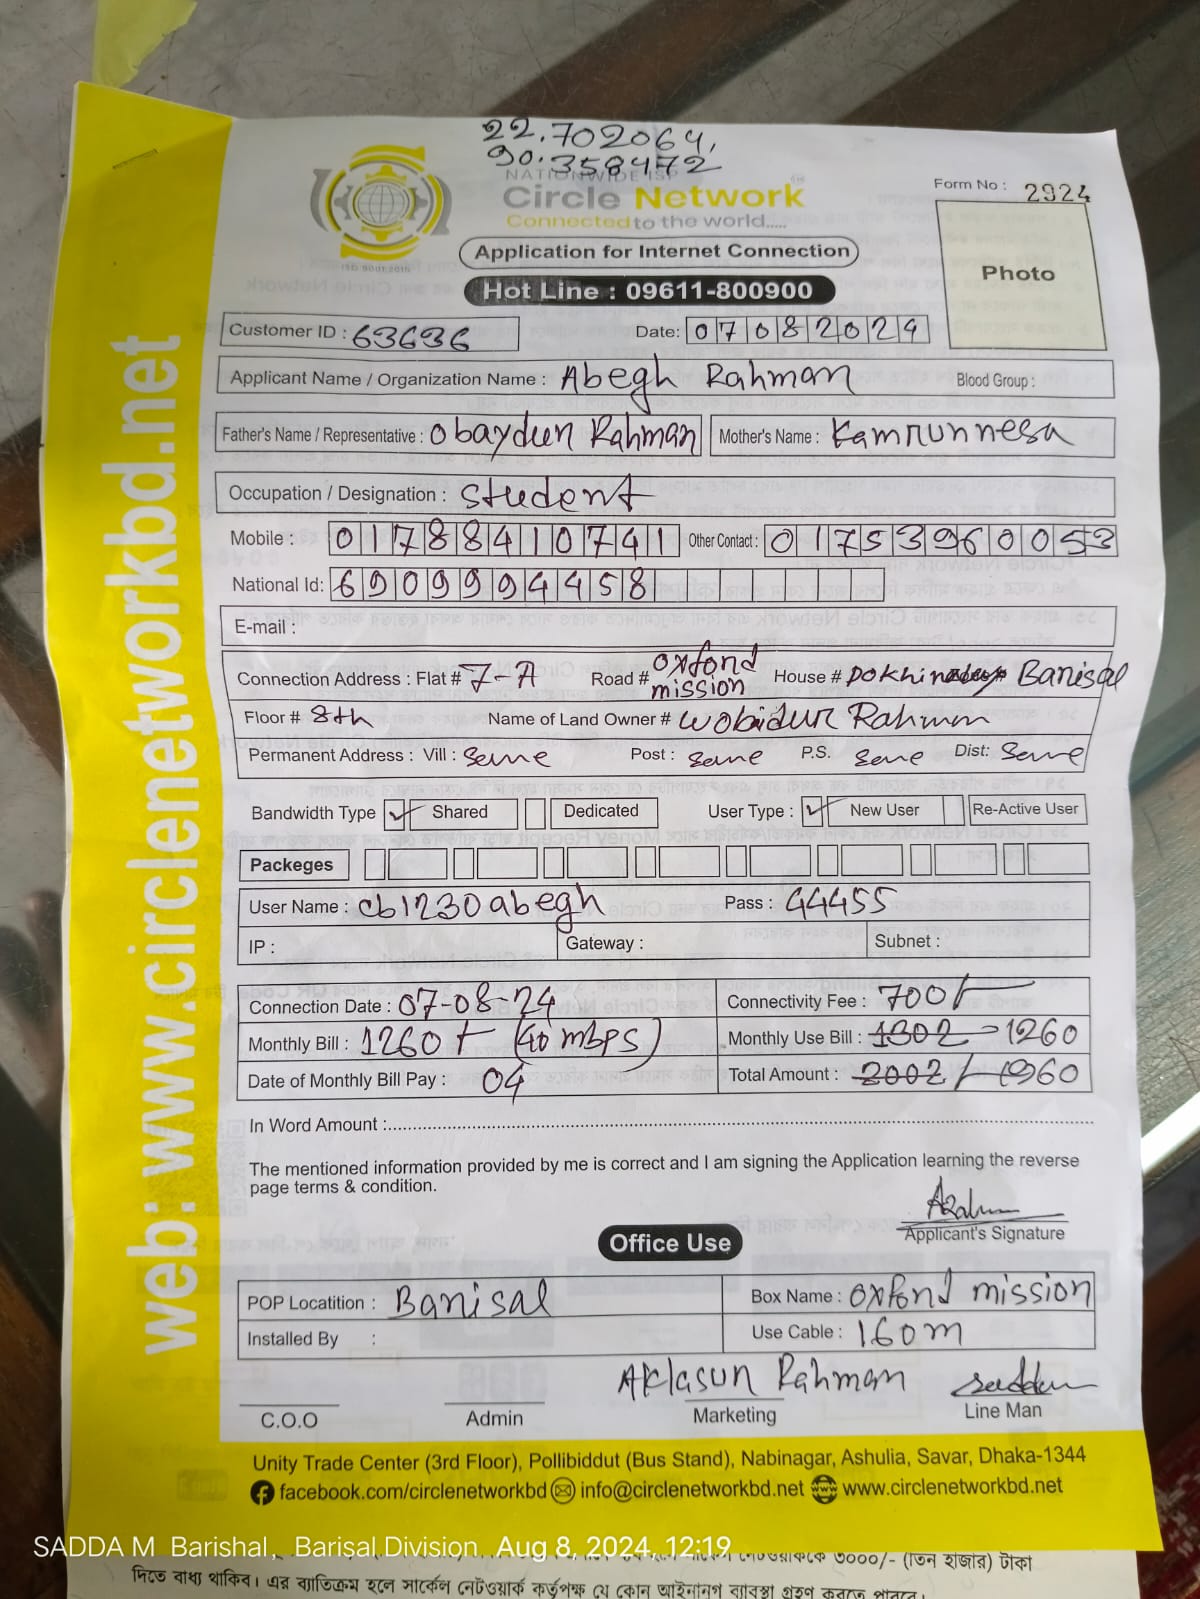 22.702064,
90.358472
NATIONWIDE ISP
Circle Network
Connected to the world.....
ISO 9001:2015
Form No : 2924
Application for Internet Connection
Photo
Hot Line : 09611-800900
Customer ID : 63636 Date: 07082024
Applicant Name / Organization Name : Abegh Rahman Blood Group :
Father's Name / Representative : Obaydun Rahman Mother's Name : Kamrunnesa
Occupation / Designation : Student
Mobile : 01788410741 Other Contact : 01753960053
National Id: 6909994458
E-mail :
Connection Address : Flat # 7-A Road # oxford mission House # Barisal
Floor # 8th Name of Land Owner # Wobidur Rahman
Permanent Address : Vill : Same Post : Same P.S. Same Dist: Same
Bandwidth Type ✓ Shared Dedicated User Type : ✓ New User Re-Active User
Packeges
User Name : cb1230abegh Pass : 44455
IP : Gateway : Subnet :
Connection Date : 07-08-24 Connectivity Fee : 700/-
Monthly Bill : 1260 (40 mbps) Monthly Use Bill : 1302 1260
Date of Monthly Bill Pay : 04 Total Amount : 2002/ 1960
In Word Amount :
The mentioned information provided by me is correct and I am signing the Application learning the reverse
page terms & condition.
Applicant's Signature
Office Use
POP Locatition : Barisal Box Name : oxford mission
Installed By : Use Cable : 160m
Aklasur Rahman
C.O.O Admin Marketing Line Man
Unity Trade Center (3rd Floor), Pollibiddut (Bus Stand), Nabinagar, Ashulia, Savar, Dhaka-1344
facebook.com/circlenetworkbd info@circlenetworkbd.net www.circlenetworkbd.net
web: www.circlenetworkbd.net
SADDA M Barishal, Barisal Division Aug 8, 2024, 12:19
৩০০০/- (তিন হাজার) টাকা
দিতে বাধ্য থাকিব। এর ব্যতিক্রম হলে সার্কেল নেটওয়ার্ক কর্তৃপক্ষ যে কোন আইনানুগ ব্যবস্থা গ্রহণ করতে পারবে।